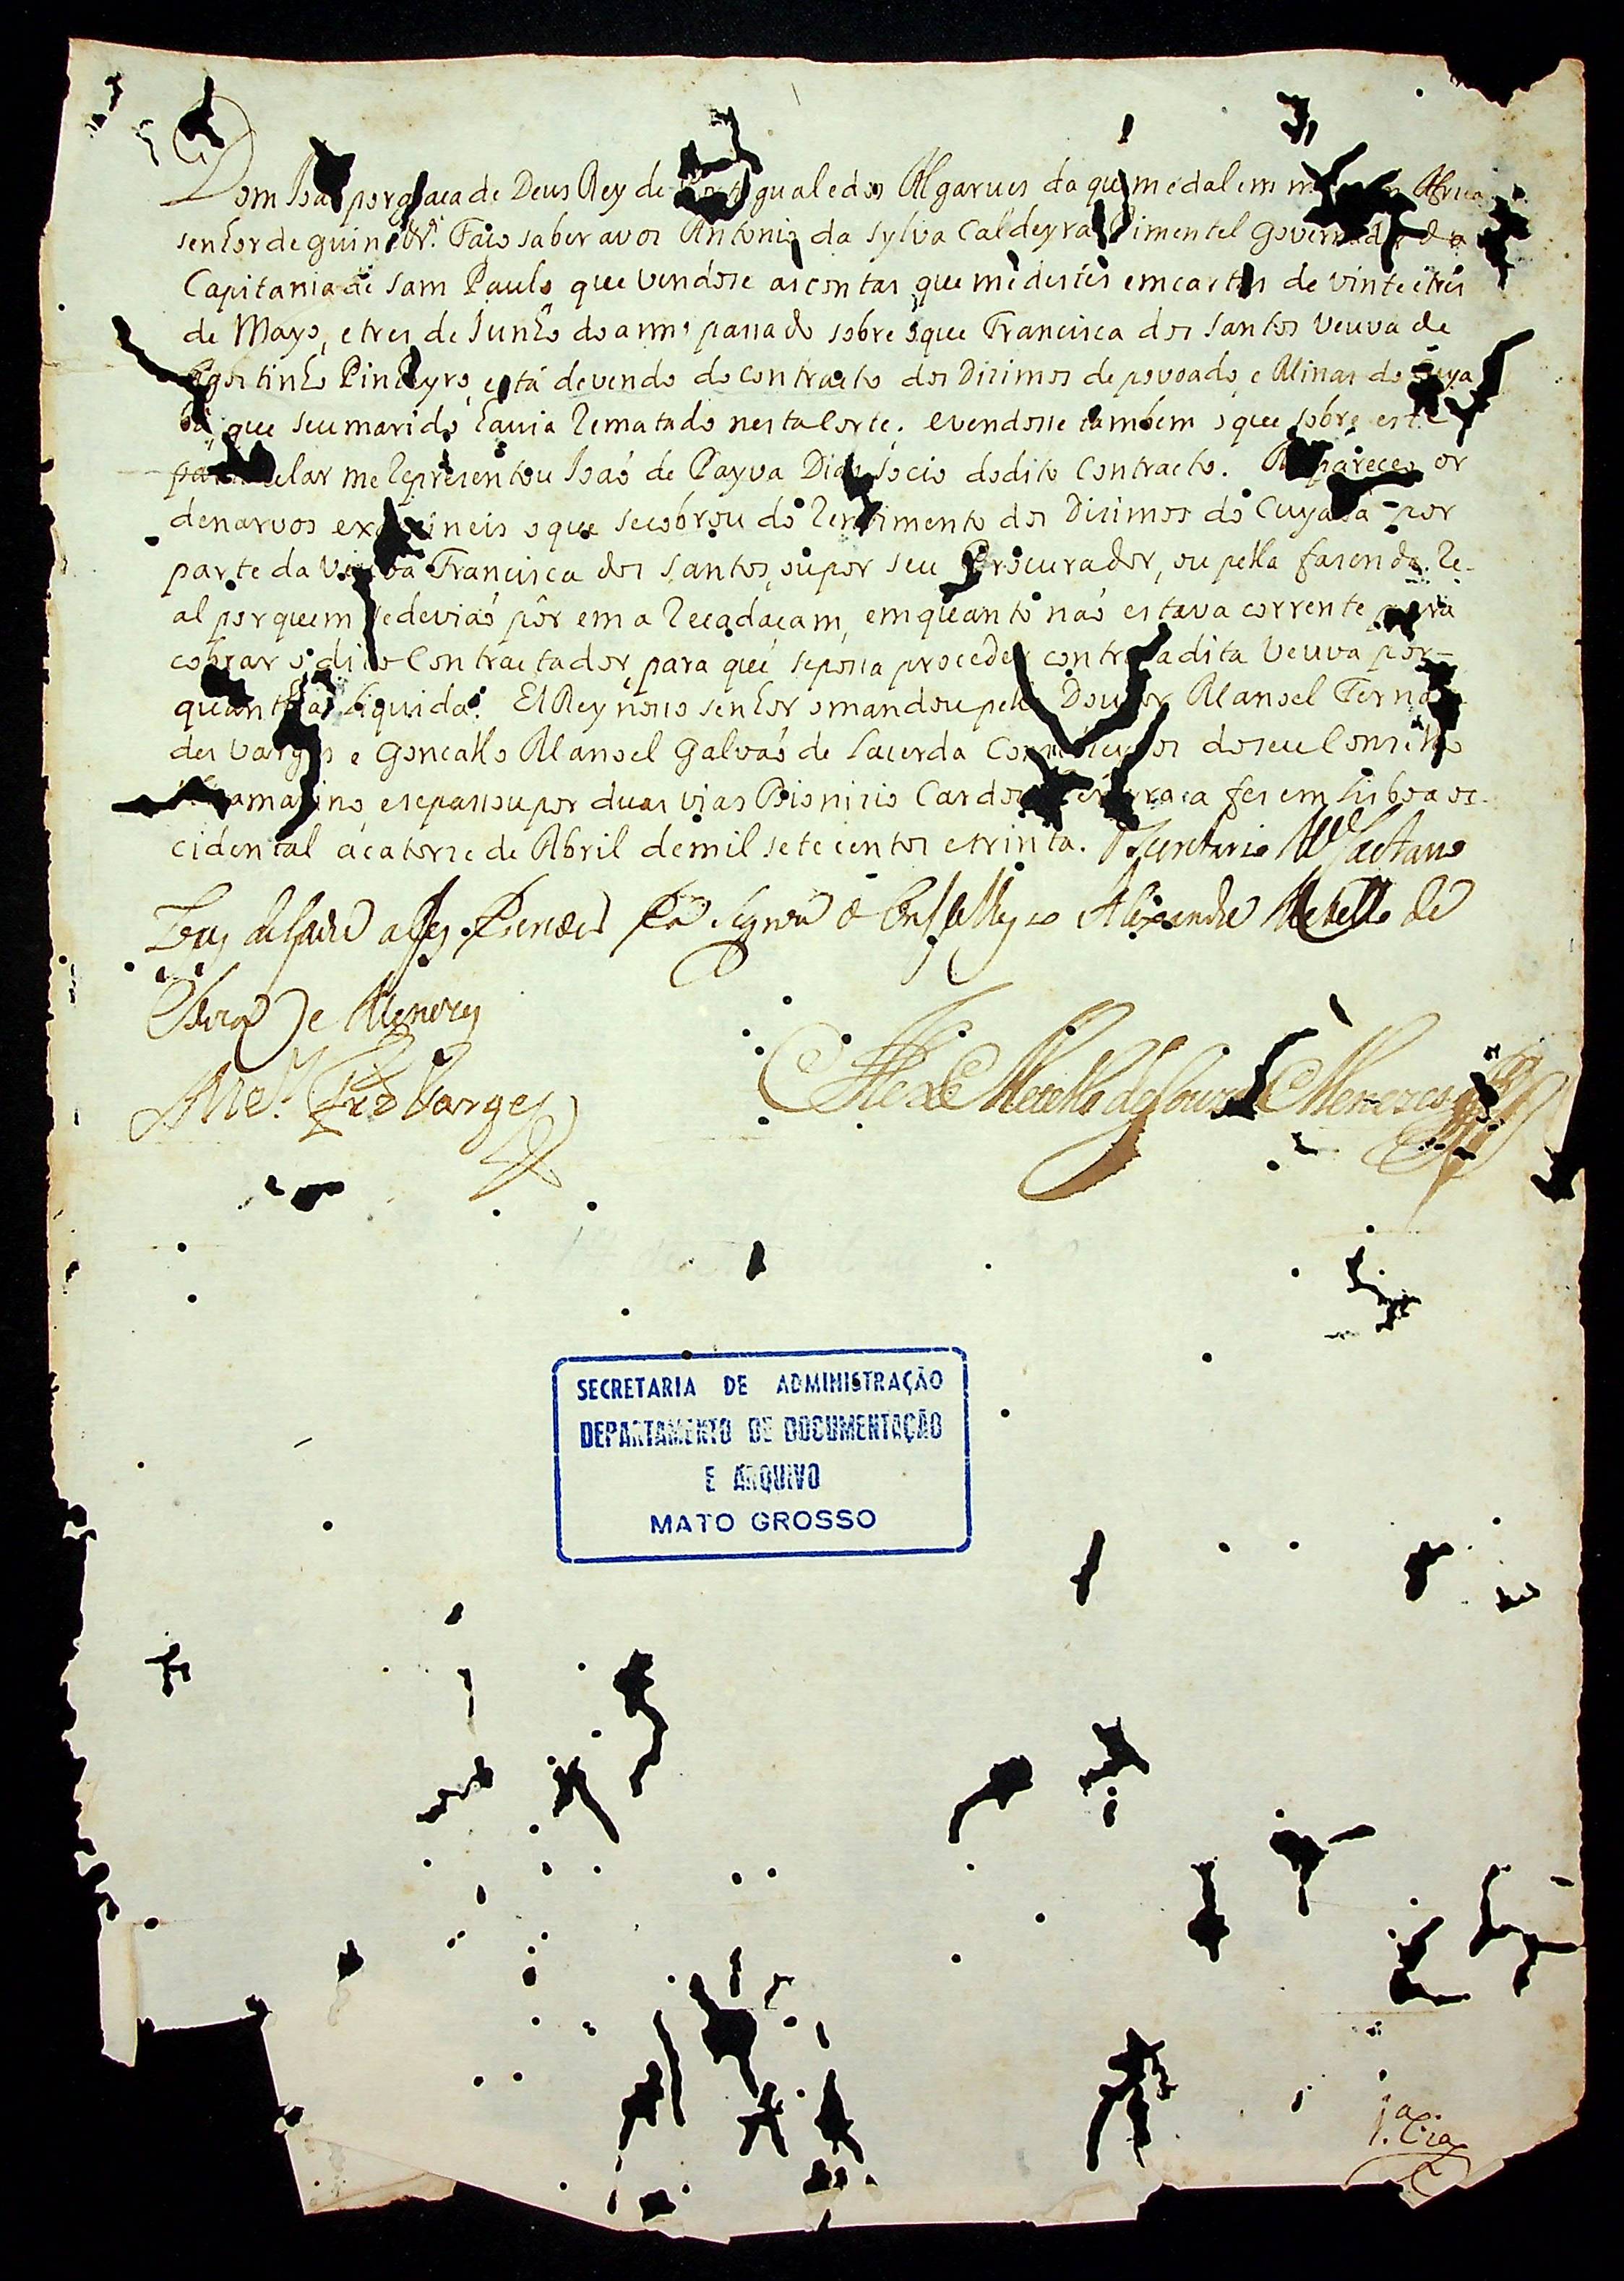 Dom Joaõ por graça de Deus Rey de Portugual e dos Algarues da quem e dalem mar em Africa
senhor de guine &ª. Faço saber a vos Antonio da Sylva Caldeyra Pimentel Governador da
Capitania de Sam Paulo que vendose as contas que me destes em cartas de vinte e tres
de Mayo, e tres de Junho do anno passado sobre o que Francisca dos Santos veuva de
Agostinho Pinheyro está devendo do contracto dos Dizimos de povoado, e Minas do Cuya
bá que seu marido havia Rematado nesta Corte. e vendosse tambem o que sobre este
particular me Reprezentou Joaõ de Payva Dias socio do dito Contracto. Me pareceo or
denarvos examineis o que se cobrou do Rendimento dos Dizimos do Cuyabá por
parte da Veuva Francisca dos Santos, ou por seu Procurador, ou pella fasenda Re-
al por quem se deviaõ pôr em a Recadaçam, em quanto naõ estava corrente para
cobrar o dito Contractador, para que se possa proceder contra a dita Veuva por-
quanthia Liquida. El Rey nosso senhor o mandou pello Doutor Manoel Fernan
des Varges e Goncallo Manoel Galvaõ de Lacerda Conselheyros do seu Conselho
Ultramarino, e se passou por duas vias Dionizio Cardozo Pereyra a fes em Lisboa oc-
cidental a catorze de Abril de mil sete centos e trinta. O Secretario M Caetano
Lopes de Lavre a fes escrever e a signou o Consselheyro Alexandre Metello de
Souza e Menezes
Mel. Frz Varges
Alexe Metello de Souza e Menezes
SECRETARIA DE ADMINISTRAÇÃO
DEPARTAMENTO DE DOCUMENTAÇÃO
E ARQUIVO
MATO GROSSO
1.ª Via